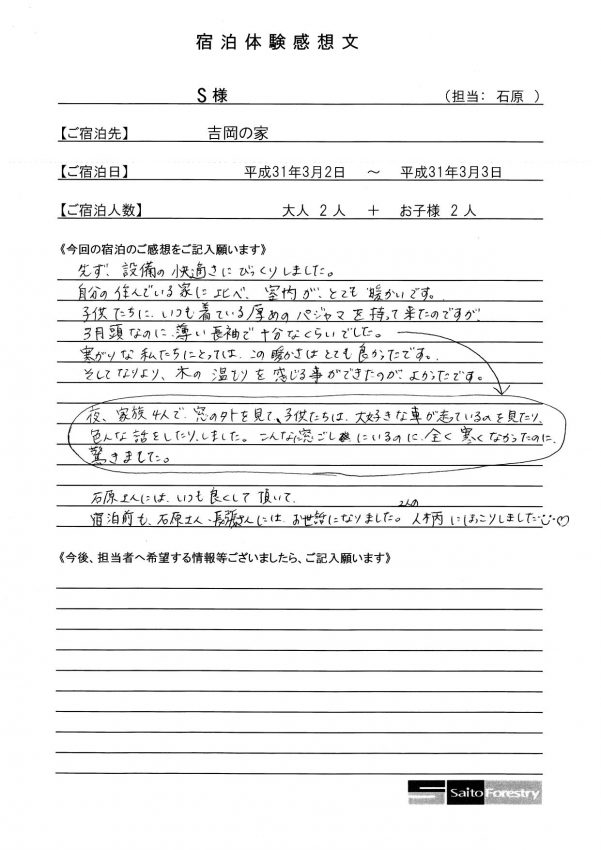 宿泊体験感想文
S様 （担当： 石原 ）
【ご宿泊先】 吉岡の家
【ご宿泊日】 平成31年3月2日 ～ 平成31年3月3日
【ご宿泊人数】 大人 2人 ＋ お子様 2人
《今回の宿泊のご感想をご記入願います》
先ず、設備の快適さにびっくりしました。
自分の住んでいる家に比べ、室内が、とても暖かいです。
子供たちに、いつも着ている厚めのパジャマを持って来たのですが、
3月頭なのに、薄い長袖で十分なくらいでした。
寒がりな私たちにとっては、この暖かさはとても良かったです。
そしてなりより、木の温もりを感じる事ができたのが、よかったです。
夜、家族4人で、窓の外を見て、子供たちは、大好きな車が走っているのを見たり、
色んな話をしたり、しました。こんなに窓ごしにいるのに、全く寒くなかったのに、
驚きました。
石原さんには、いつも良くして頂いて、
宿泊前も、石原さん、長張さんには、お世話になりました。2人の人柄にほっこりしました
《今後、担当者へ希望する情報等ございましたら、ご記入願います》
Saito Forestry